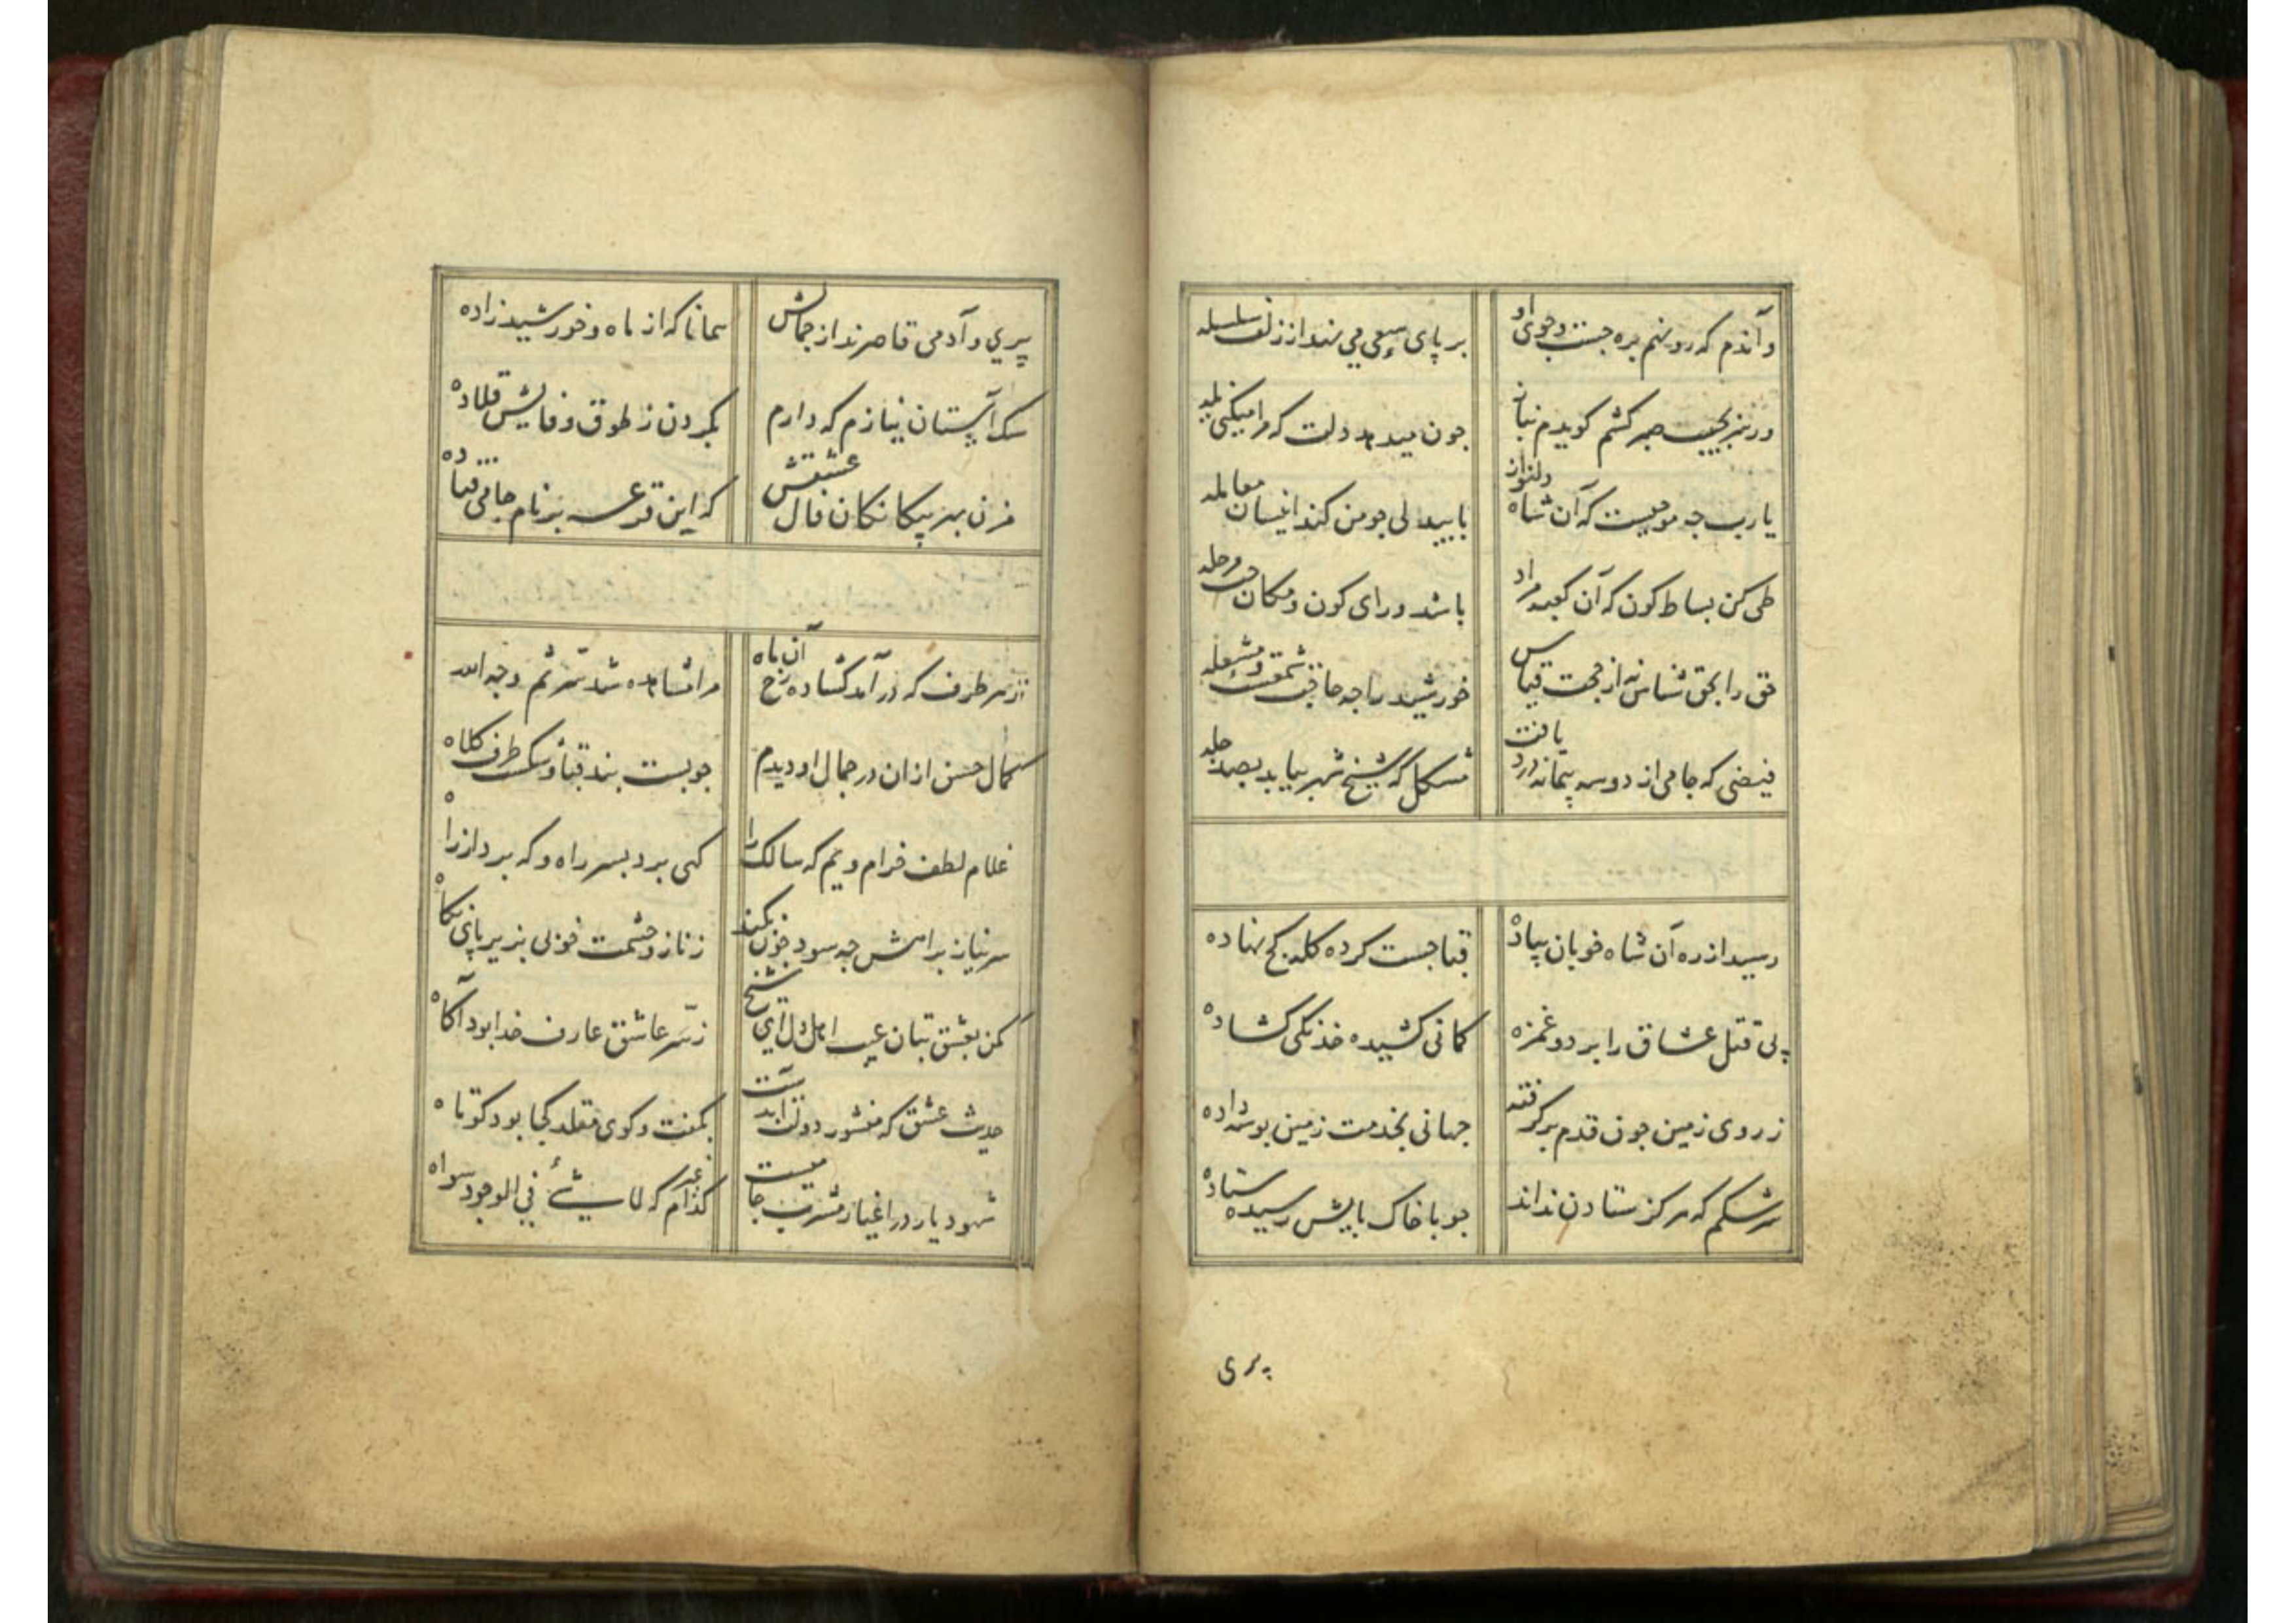 وآندم که رو نهم بره جست وجوی او بر پای سعی می نهد از زلف سلسله
ور نیز بجیب صبر کشم کویدم نیاز جون میدهد دلت که مرا میکنی یله
یارب جه موجبست که آن شاه دلنواز با بیدلی جو من کند اینسان معامله
طی کن بساط کون که آن کعبه مراد باشد ورای کون ومکان جند مرحله
حق را بحق شناس نه از حجت قیاس خورشید را جه حاجت شمعست ومشعله
فیضی که جامی از دو سه پیمانه درد یافت مشکل که شیخ شهر بیابد بصد جله
رسید از ره آن شاه خوبان پیاده قبا جست کرده کله کج نهاده
پی قتل عشاق را بر دو غمزه کمانی کشیده خدنکی کشاده
ز روی زمین جون قدم بر کرفته جهانی بخدمت زمین بوسه داده
سرشکم که هرکز ستادن نداند جو با خاک پایش رسیده ستاده
پری
پری و آدمی قاصرند از جمالش همانا که از ماه و خورشید زاده
سک آستان نیازم که دارم بکردن ز طوق وفایش قلاده
مزن بهر پیکانکان فال عشقش که این قرعه بر نام جامی فتاده
ز هر طرف که در آمد کشاده رخ آن ماه مرا مشاهده شد سّر ثم وجه الله
کمال حسن ازان در جمال او دیدم جو بست بند قبا و شکست طرف کلاه
غلام لطف خرام ویم که سالک را کهی برد بسر راه و که برد از راه
سر نیاز براهش جه سود جون نکند ز ناز وحشمت خوبی بزیر پای نکاه
مکن بعشق بتان عیب اهل دل ای شیخ ز سّر عاشق عارف خدا بود آکاه
حدیث عشق که منشور دولت ابدست بکفت وکوی مقلد کجا بود کوتاه
شهود یار در اغیار مشرب جامیست کدام غیر که لا شیئ فی الوجود سواه